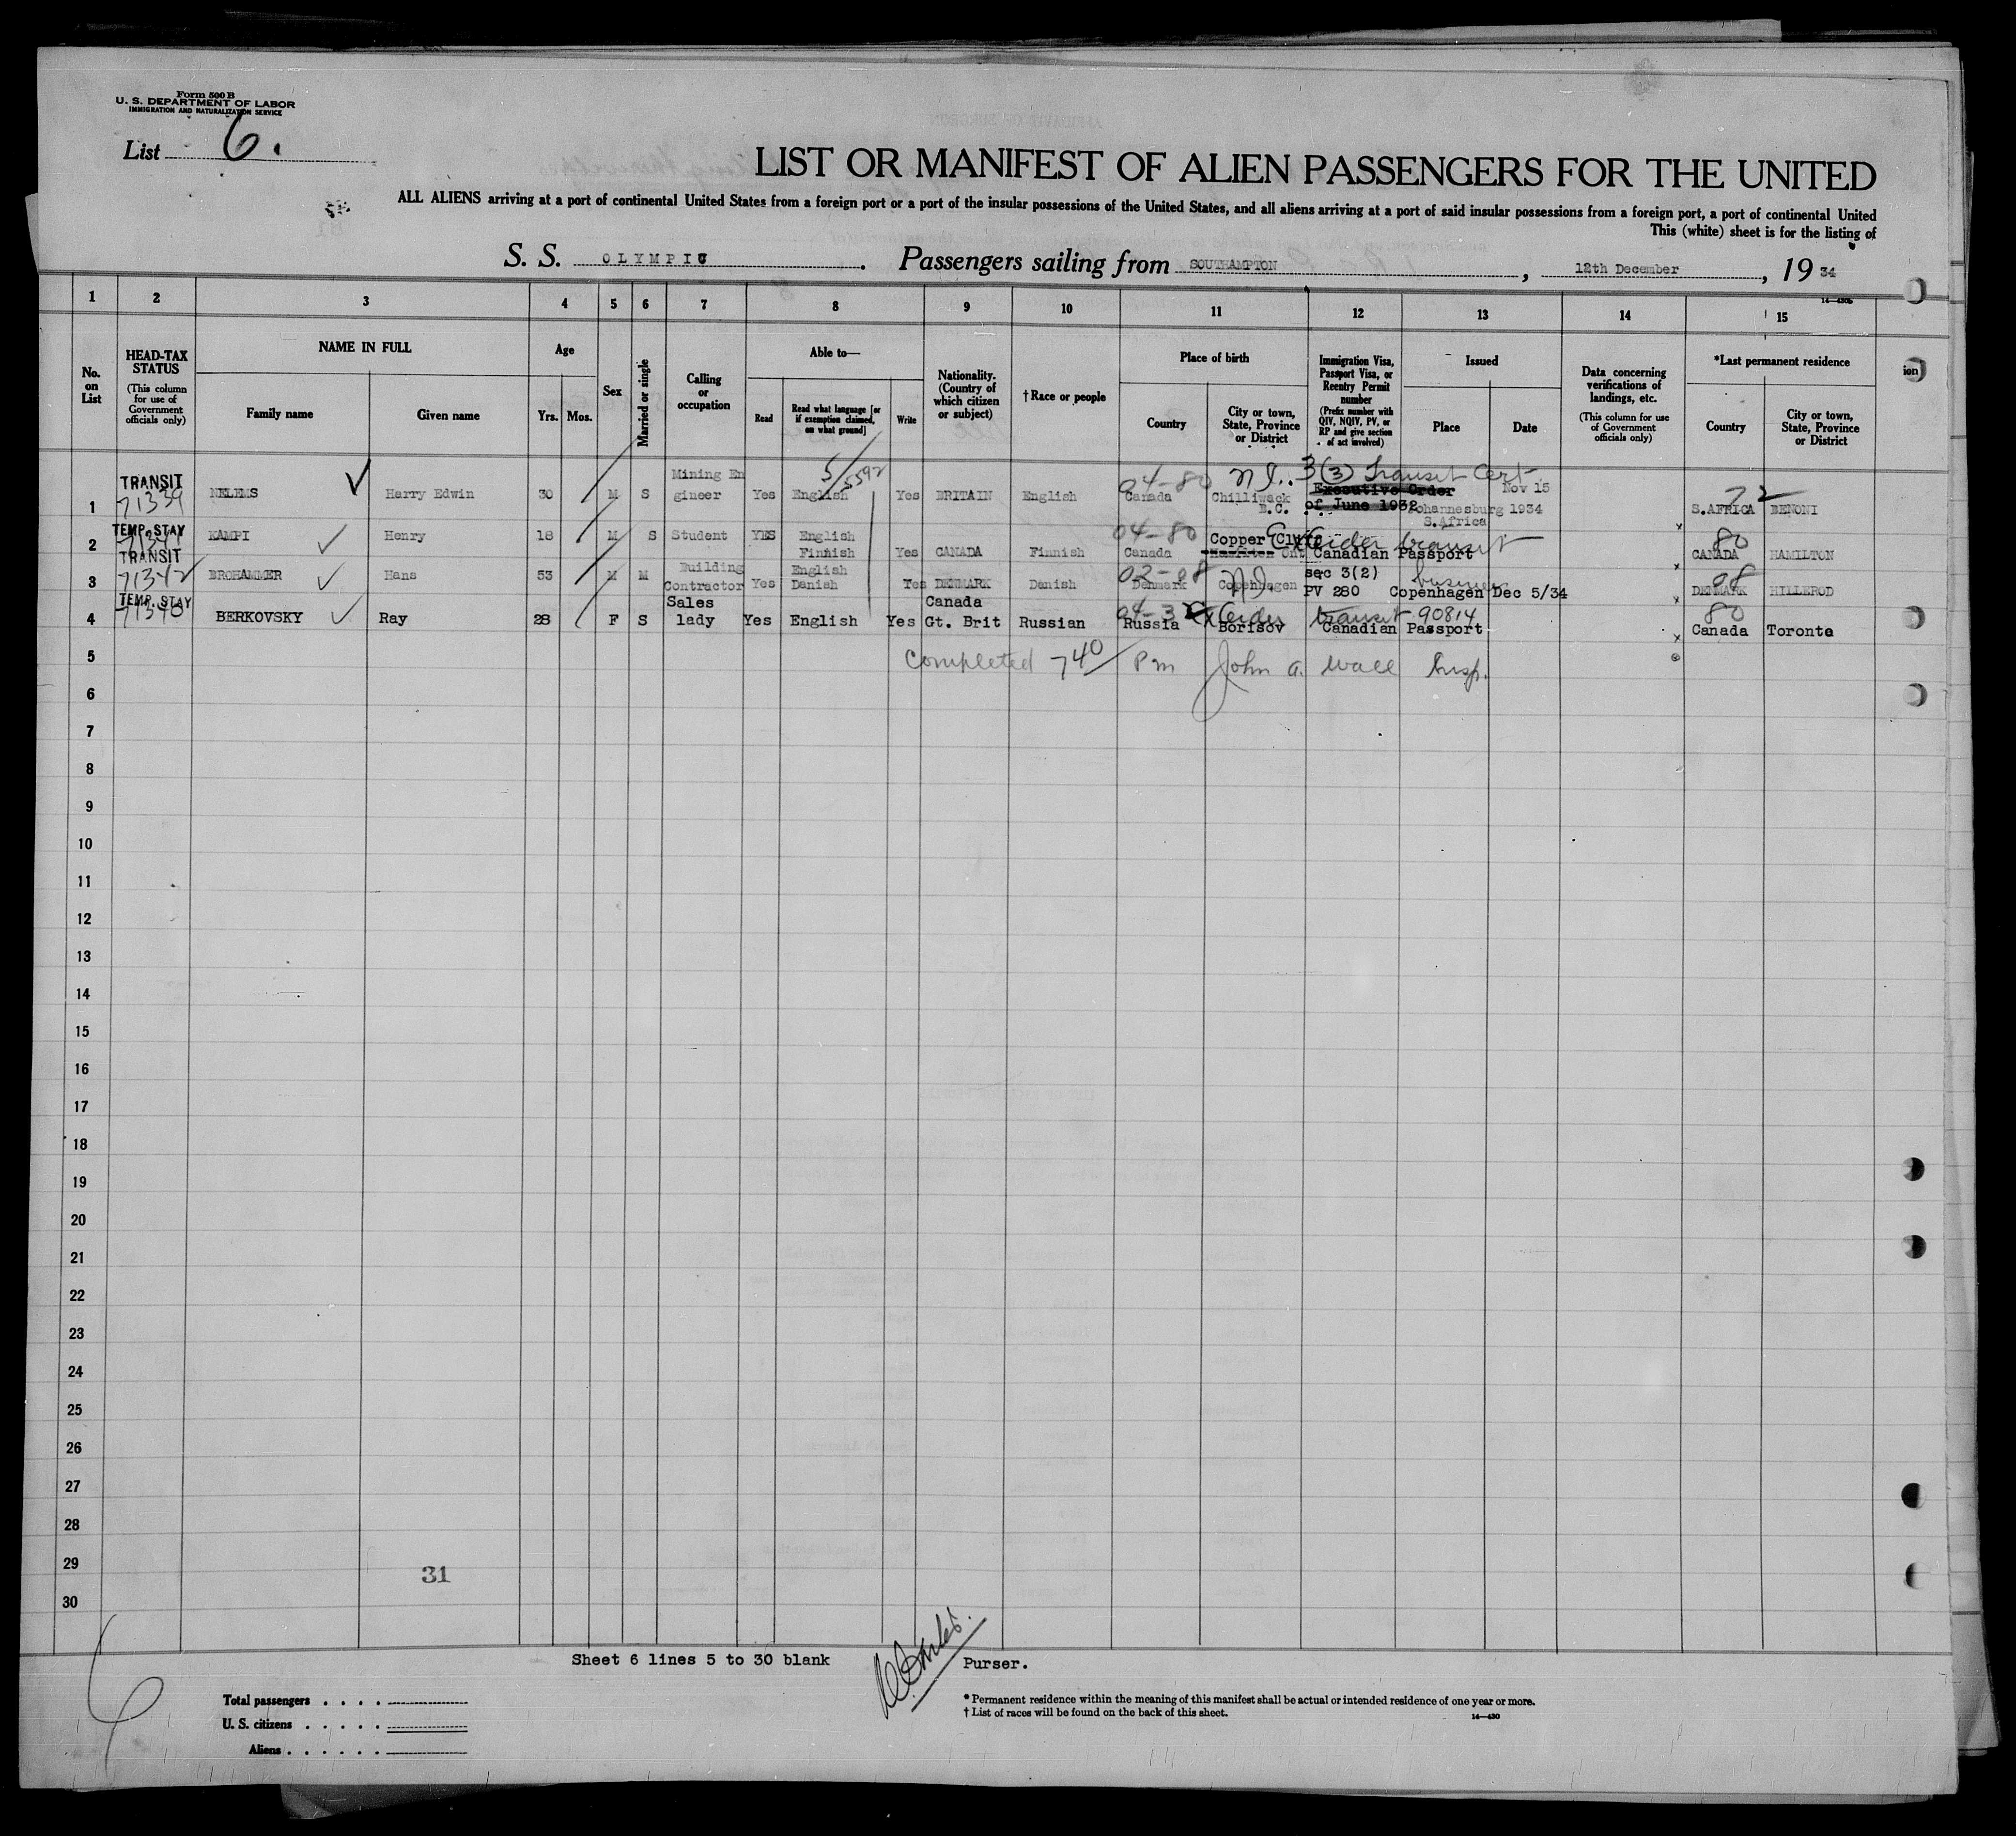 Form 500 B
U. S. DEPARTMENT OF LABOR
IMMIGRATION AND NATURALIZATION SERVICE
List 6.
LIST OR MANIFEST OF ALIEN PASSENGERS FOR THE UNITED
ALL ALIENS arriving at a port of continental United States from a foreign port or a port of the insular possessions of the United States, and all aliens arriving at a port of said insular possessions from a foreign port, a port of continental United
This (white) sheet is for the listing of
S. S. OLYMPIC. Passengers sailing from SOUTHAMPTON, 12th December, 19 34
1 2 3 4 5 6 7 8 9 10 11 12 13 14 15
No. on List
HEAD-TAX STATUS (This column for use of Government officials only)
NAME IN FULL
Family name Given name
Age
Yrs. Mos.
Sex
Married or single
Calling or occupation
Able to—
Read Read what language [or if exemption claimed, on what ground] Write
Nationality. (Country of which citizen or subject)
†Race or people
Place of birth
Country City or town, State, Province or District
Immigration Visa, Passport Visa, or Reentry Permit number (Prefix number with QIV, NQIV, PV, or RP and give section of act involved)
Issued
Place Date
Data concerning verifications of landings, etc. (This column for use of Government officials only)
*Last permanent residence
Country City or town, State, Province or District
ion
5/5592
TRANSIT 71339 Mining En 04-80 3(3) Transit Cert Nov 15 72
1 NELEMS Harry Edwin 30 M S gineer Yes English Yes BRITAIN English Canada Chilliwack B.C. Executive Order of June 1932 Johannesburg 1934 S.Africa S.AFRICA BENONI
TEMP. STAY 71341 04-80 80
2 KAMPI Henry 18 M S Student YES English Finnish Yes CANADA Finnish Canada Copper Cliff Hamilton Ont Canadian Passport transit CANADA HAMILTON
TRANSIT 71342 02-08 sec 3(2) business 08
3 BROHAMMER Hans 53 M M Building Contractor Yes English Danish Yes DENMARK Danish Denmark Copenhagen PV 280 Copenhagen Dec 5/34 DENMARK HILLEROD
TEMP. STAY 71340 transit 90814 80
4 BERKOVSKY Ray 28 F S Sales lady Yes English Yes Canada Gt. Brit Russian Russia Borisov Canadian Passport Canada Toronto
5 Completed 7 40 Pm John A. Wall Insp.
6
7
8
9
10
11
12
13
14
15
16
17
18
19
20
21
22
23
24
25
26
27
28
29
30
31
Sheet 6 lines 5 to 30 blank
Purser.
Total passengers . . . .
U. S. citizens . . . . .
Aliens . . . . . .
* Permanent residence within the meaning of this manifest shall be actual or intended residence of one year or more.
† List of races will be found on the back of this sheet.
14—430